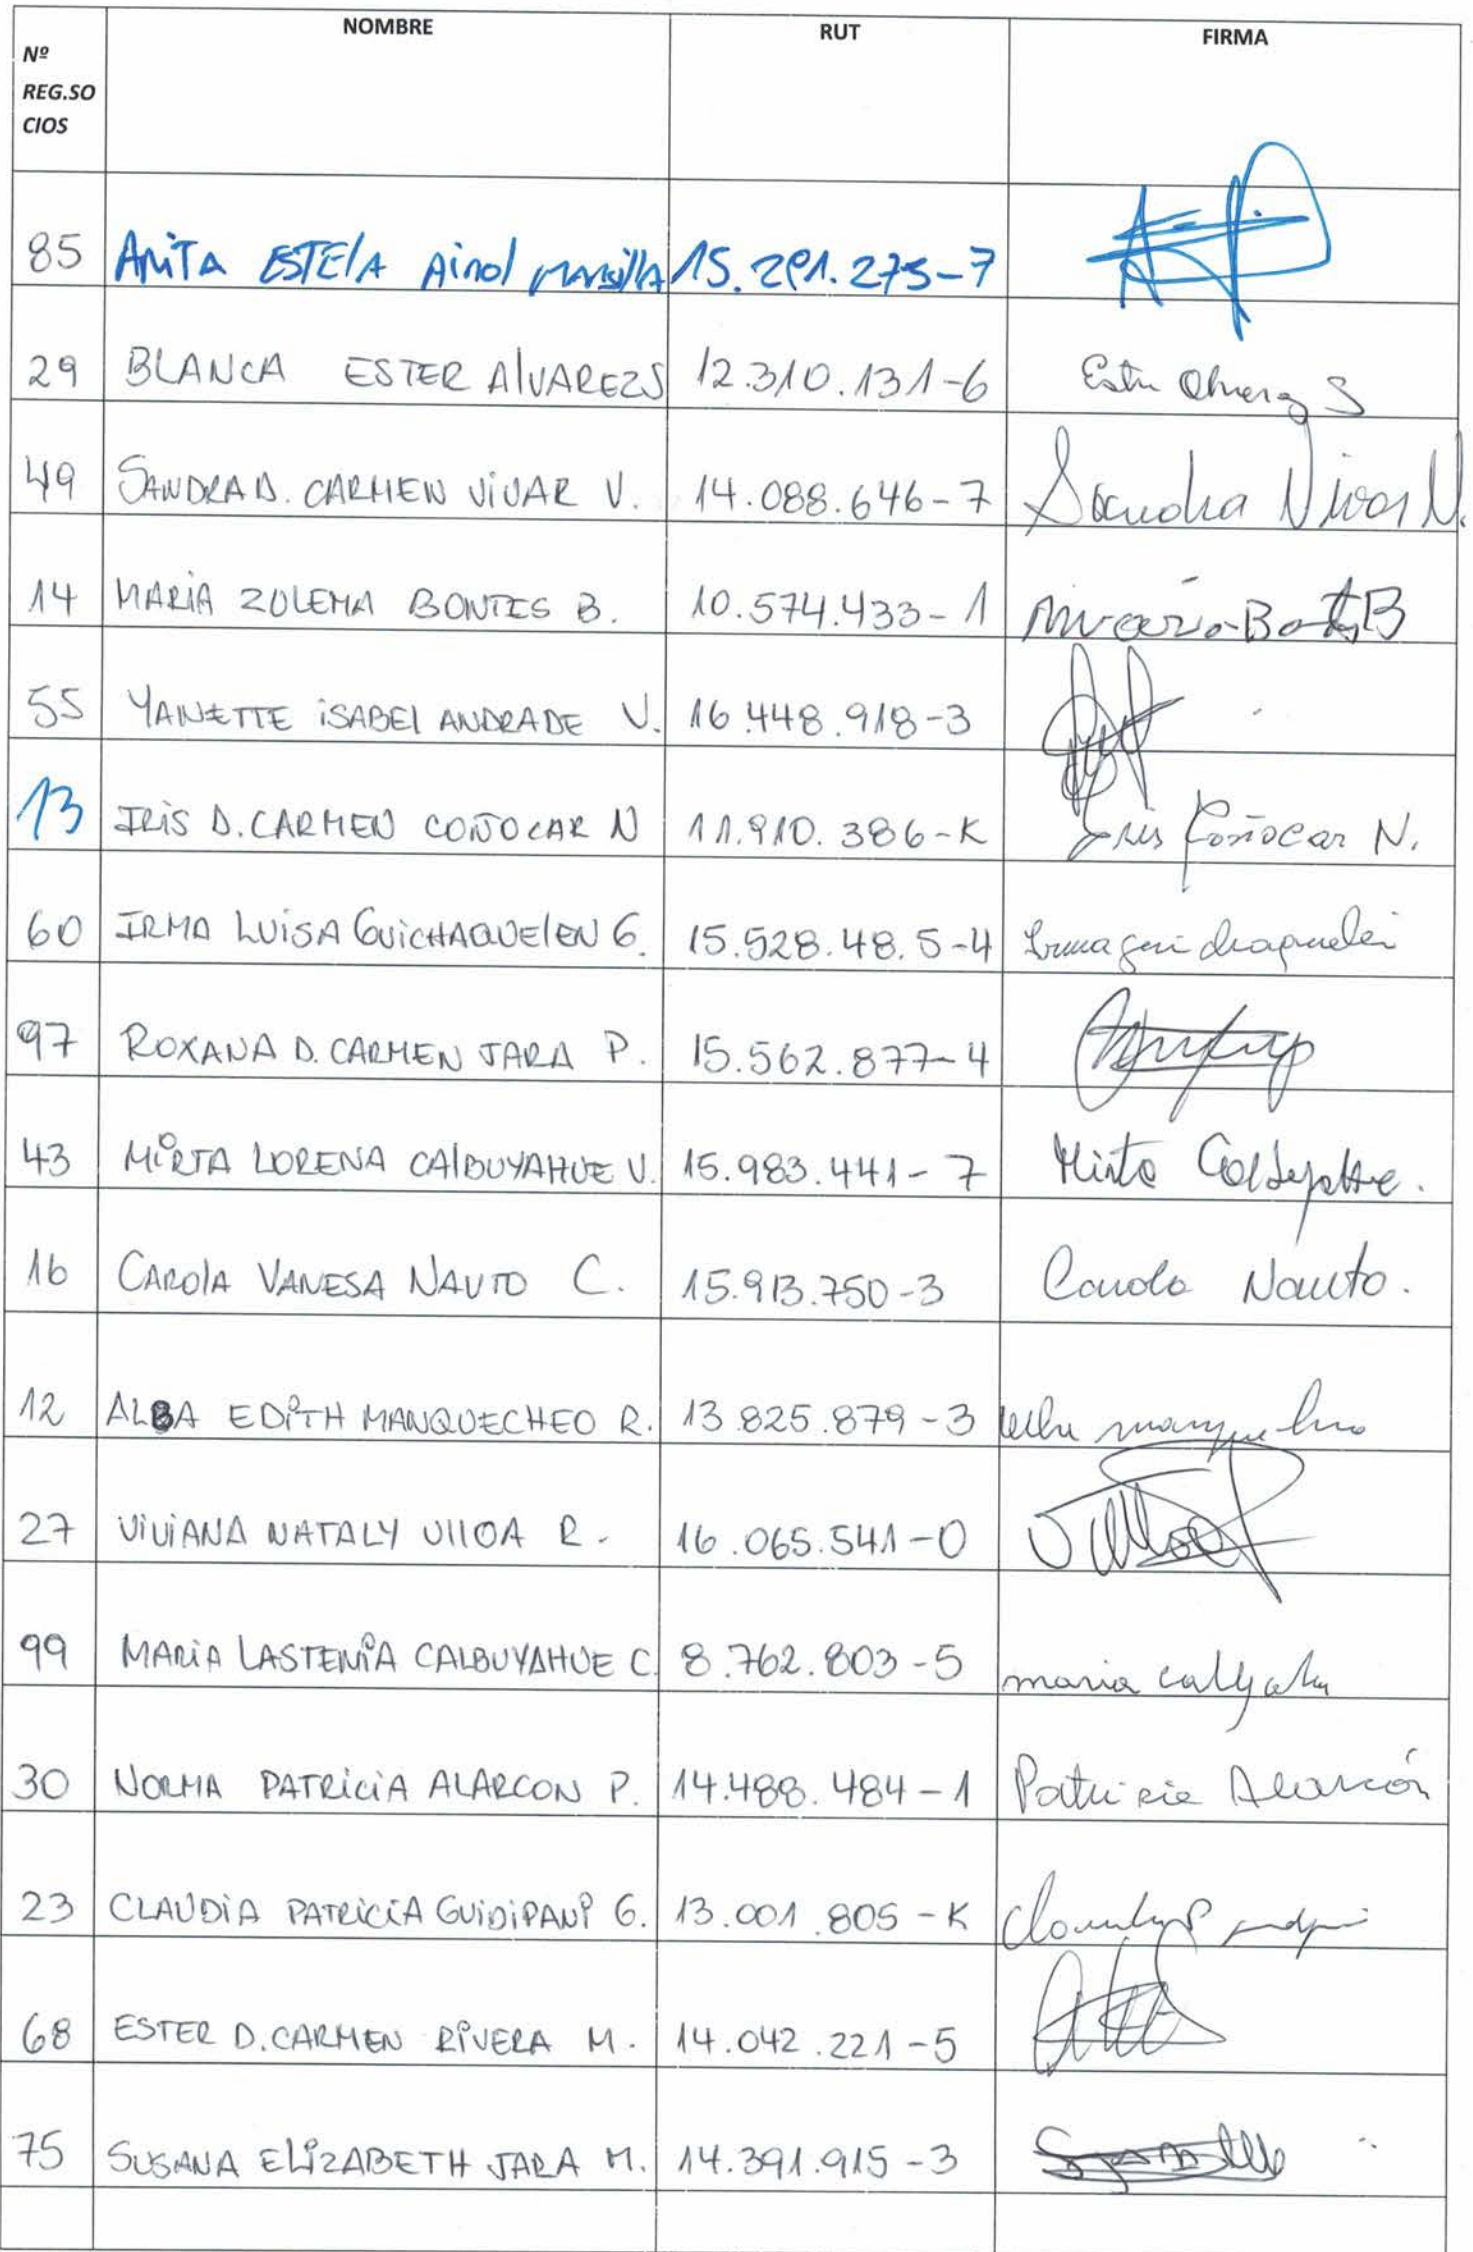 Nº REG.SO CIOS NOMBRE RUT FIRMA
85 ANITA ESTELA Ainol MANSILLA 15.291.275-7
29 BLANCA ESTER AlVAREZ S 12.310.131-6 Ester Alvarez S
49 SANDRA D. CARMEN ViVAR V. 14.088.646-7 Sandra Vivar V.
14 MARiA ZULEMA BONTES B. 10.574.433-1 María Bontes B
55 YANETTE iSABEl ANDRADE V. 16.448.918-3
13 IRiS D. CARMEN COÑOCAR N 11.910.386-K Iris Coñocar N.
60 IRMA LUiSA GUiCHAQUElEN G. 15.528.48.5-4 Irma Guichaquelen
97 ROXANA D. CARMEN JARA P. 15.562.877-4
43 MiRTA LORENA CAlBUYAHUE V. 15.983.441-7 Mirta Calbuyahue.
16 CAROlA VANESA NAUTO C. 15.913.750-3 Carola Nauto.
12 ALBA EDiTH MANQUECHEO R. 13.825.879-3
27 ViViANA NATALY UllOA R. 16.065.541-0
99 MARiA LASTENiA CALBUYAHUE C. 8.762.803-5 maria
30 NORMA PATRiCiA ALARCON P. 14.488.484-1 Patricia Alarcón
23 CLAUDiA PATRiCiA GUiDiPANi G. 13.001.805-K
68 ESTER D. CARMEN RiVERA M. 14.042.221-5
75 SUSANA EliZABETH JARA M. 14.391.915-3